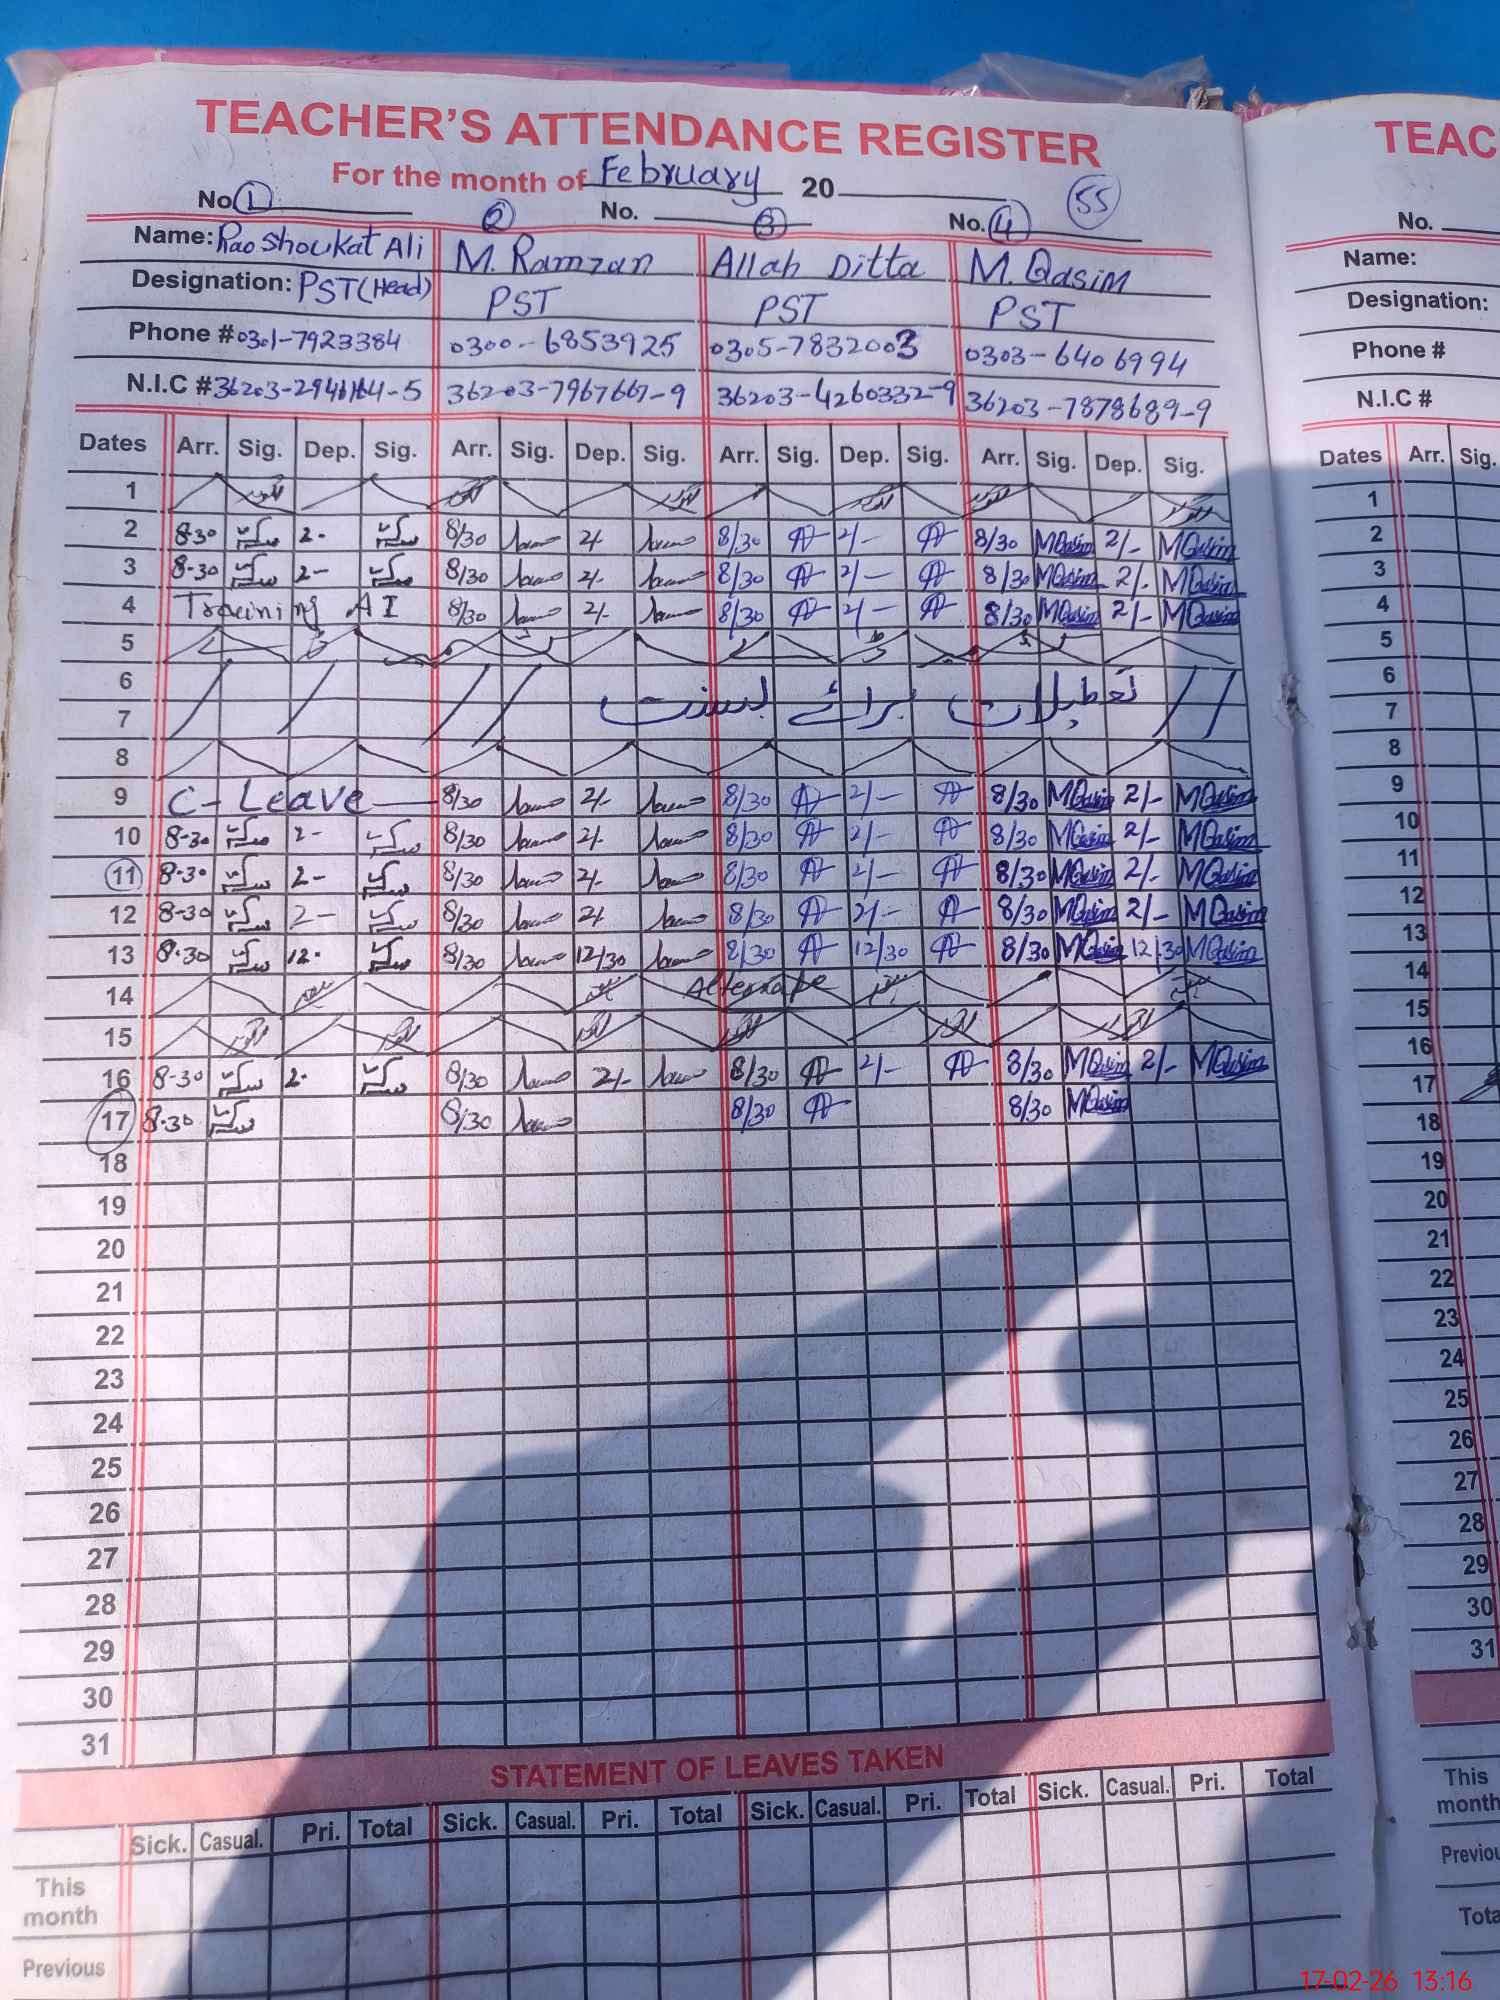 TEACHER'S ATTENDANCE REGISTER
For the month of February 20
No. 1 2 No. 3 No. 4 55
Name: Rao Shoukat Ali M. Ramzan Allah Ditta M. Qasim
Designation: PST (Head) PST PST PST
Phone # 0301-7923384 0300-6853925 0305-7832003 0303-6406994
N.I.C # 36203-7967667-9 36203-4260332-9 36203-7878689-9
Dates Arr. Sig. Dep. Sig. Arr. Sig. Dep. Sig. Arr. Sig. Dep. Sig. Arr. Sig. Dep. Sig.
1
2 8-30 2- 8/30 2/- 8/30 2/- 8/30 MQasim 2/- MQasim
3 8-30 2- 8/30 2/- 8/30 2/- 8/30 MQasim 2/- MQasim
4 Training AI 8/30 2/- 8/30 2/- 8/30 MQasim 2/- MQasim
5
6 تعطیلات برائے بسنت
7
8
9 C-Leave 8/30 2/- 8/30 2/- 8/30 MQasim 2/- MQasim
10 8-30 2- 8/30 2/- 8/30 2/- 8/30 MQasim 2/- MQasim
11 8-30 2- 8/30 2/- 8/30 2/- 8/30 MQasim 2/- MQasim
12 8-30 2- 8/30 2/- 8/30 2/- 8/30 MQasim 2/- MQasim
13 8-30 12- 8/30 12/30 8/30 12/30 8/30 MQasim 12/30 MQasim
14 Alternate
15
16 8-30 2- 8/30 2/- 8/30 2/- 8/30 MQasim 2/- MQasim
17 8-30 8/30 8/30 8/30 MQasim
18
19
20
21
22
23
24
25
26
27
28
29
30
31
STATEMENT OF LEAVES TAKEN
Sick. Casual. Pri. Total Sick. Casual. Pri. Total Sick. Casual. Pri. Total Sick. Casual. Pri. Total
This month
Previous
TEAC
No.
Name:
Designation:
Phone #
N.I.C #
Dates Arr. Sig.
1
2
3
4
5
6
7
8
9
10
11
12
13
14
15
16
17
18
19
20
21
22
23
24
25
26
27
28
29
30
31
This
month
Previou
Tota
17-02-26 13:16